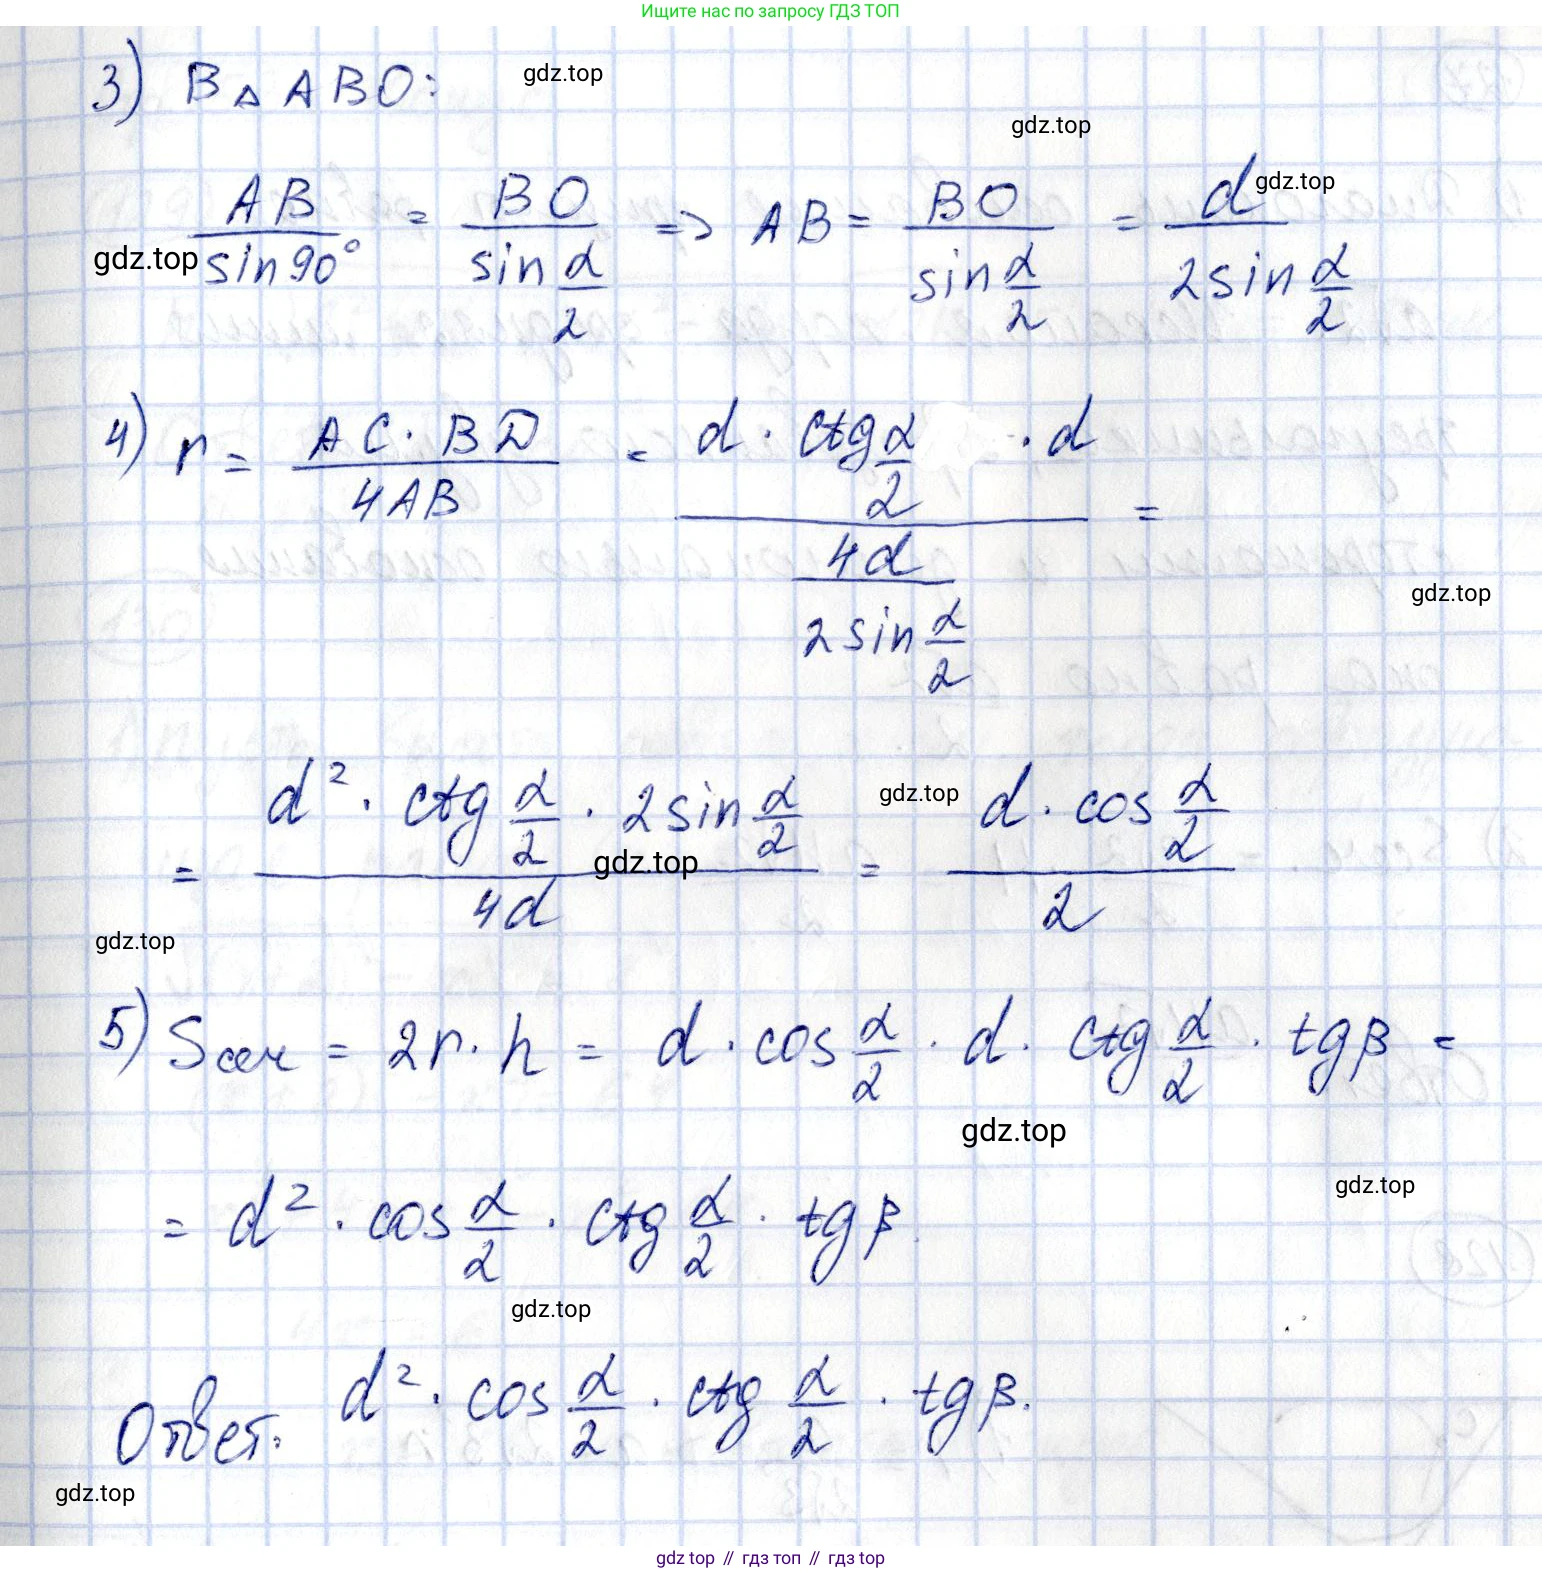 Ищите нас по запросу ГДЗ ТОП
3) В △ ABO:
gdz.top
gdz.top
AB/sin90° = BO/sin α/2 => AB = BO/sin α/2 = d/2sin α/2
gdz.top
gdz.top
4) r = AC · BD/4AB = d · ctg α/2 · d/(4d/2sin α/2) =
gdz.top
= d² · ctg α/2 · 2sin α/2/4d = d · cos α/2/2
gdz.top
gdz.top
gdz.top
5) Sсеч = 2r · h = d · cos α/2 · d · ctg α/2 · tgβ =
gdz.top
gdz.top
= d² · cos α/2 · ctg α/2 · tgβ.
gdz.top
Ответ: d² · cos α/2 · ctg α/2 · tgβ.
gdz.top
gdz.top // гдз топ // гдз.top